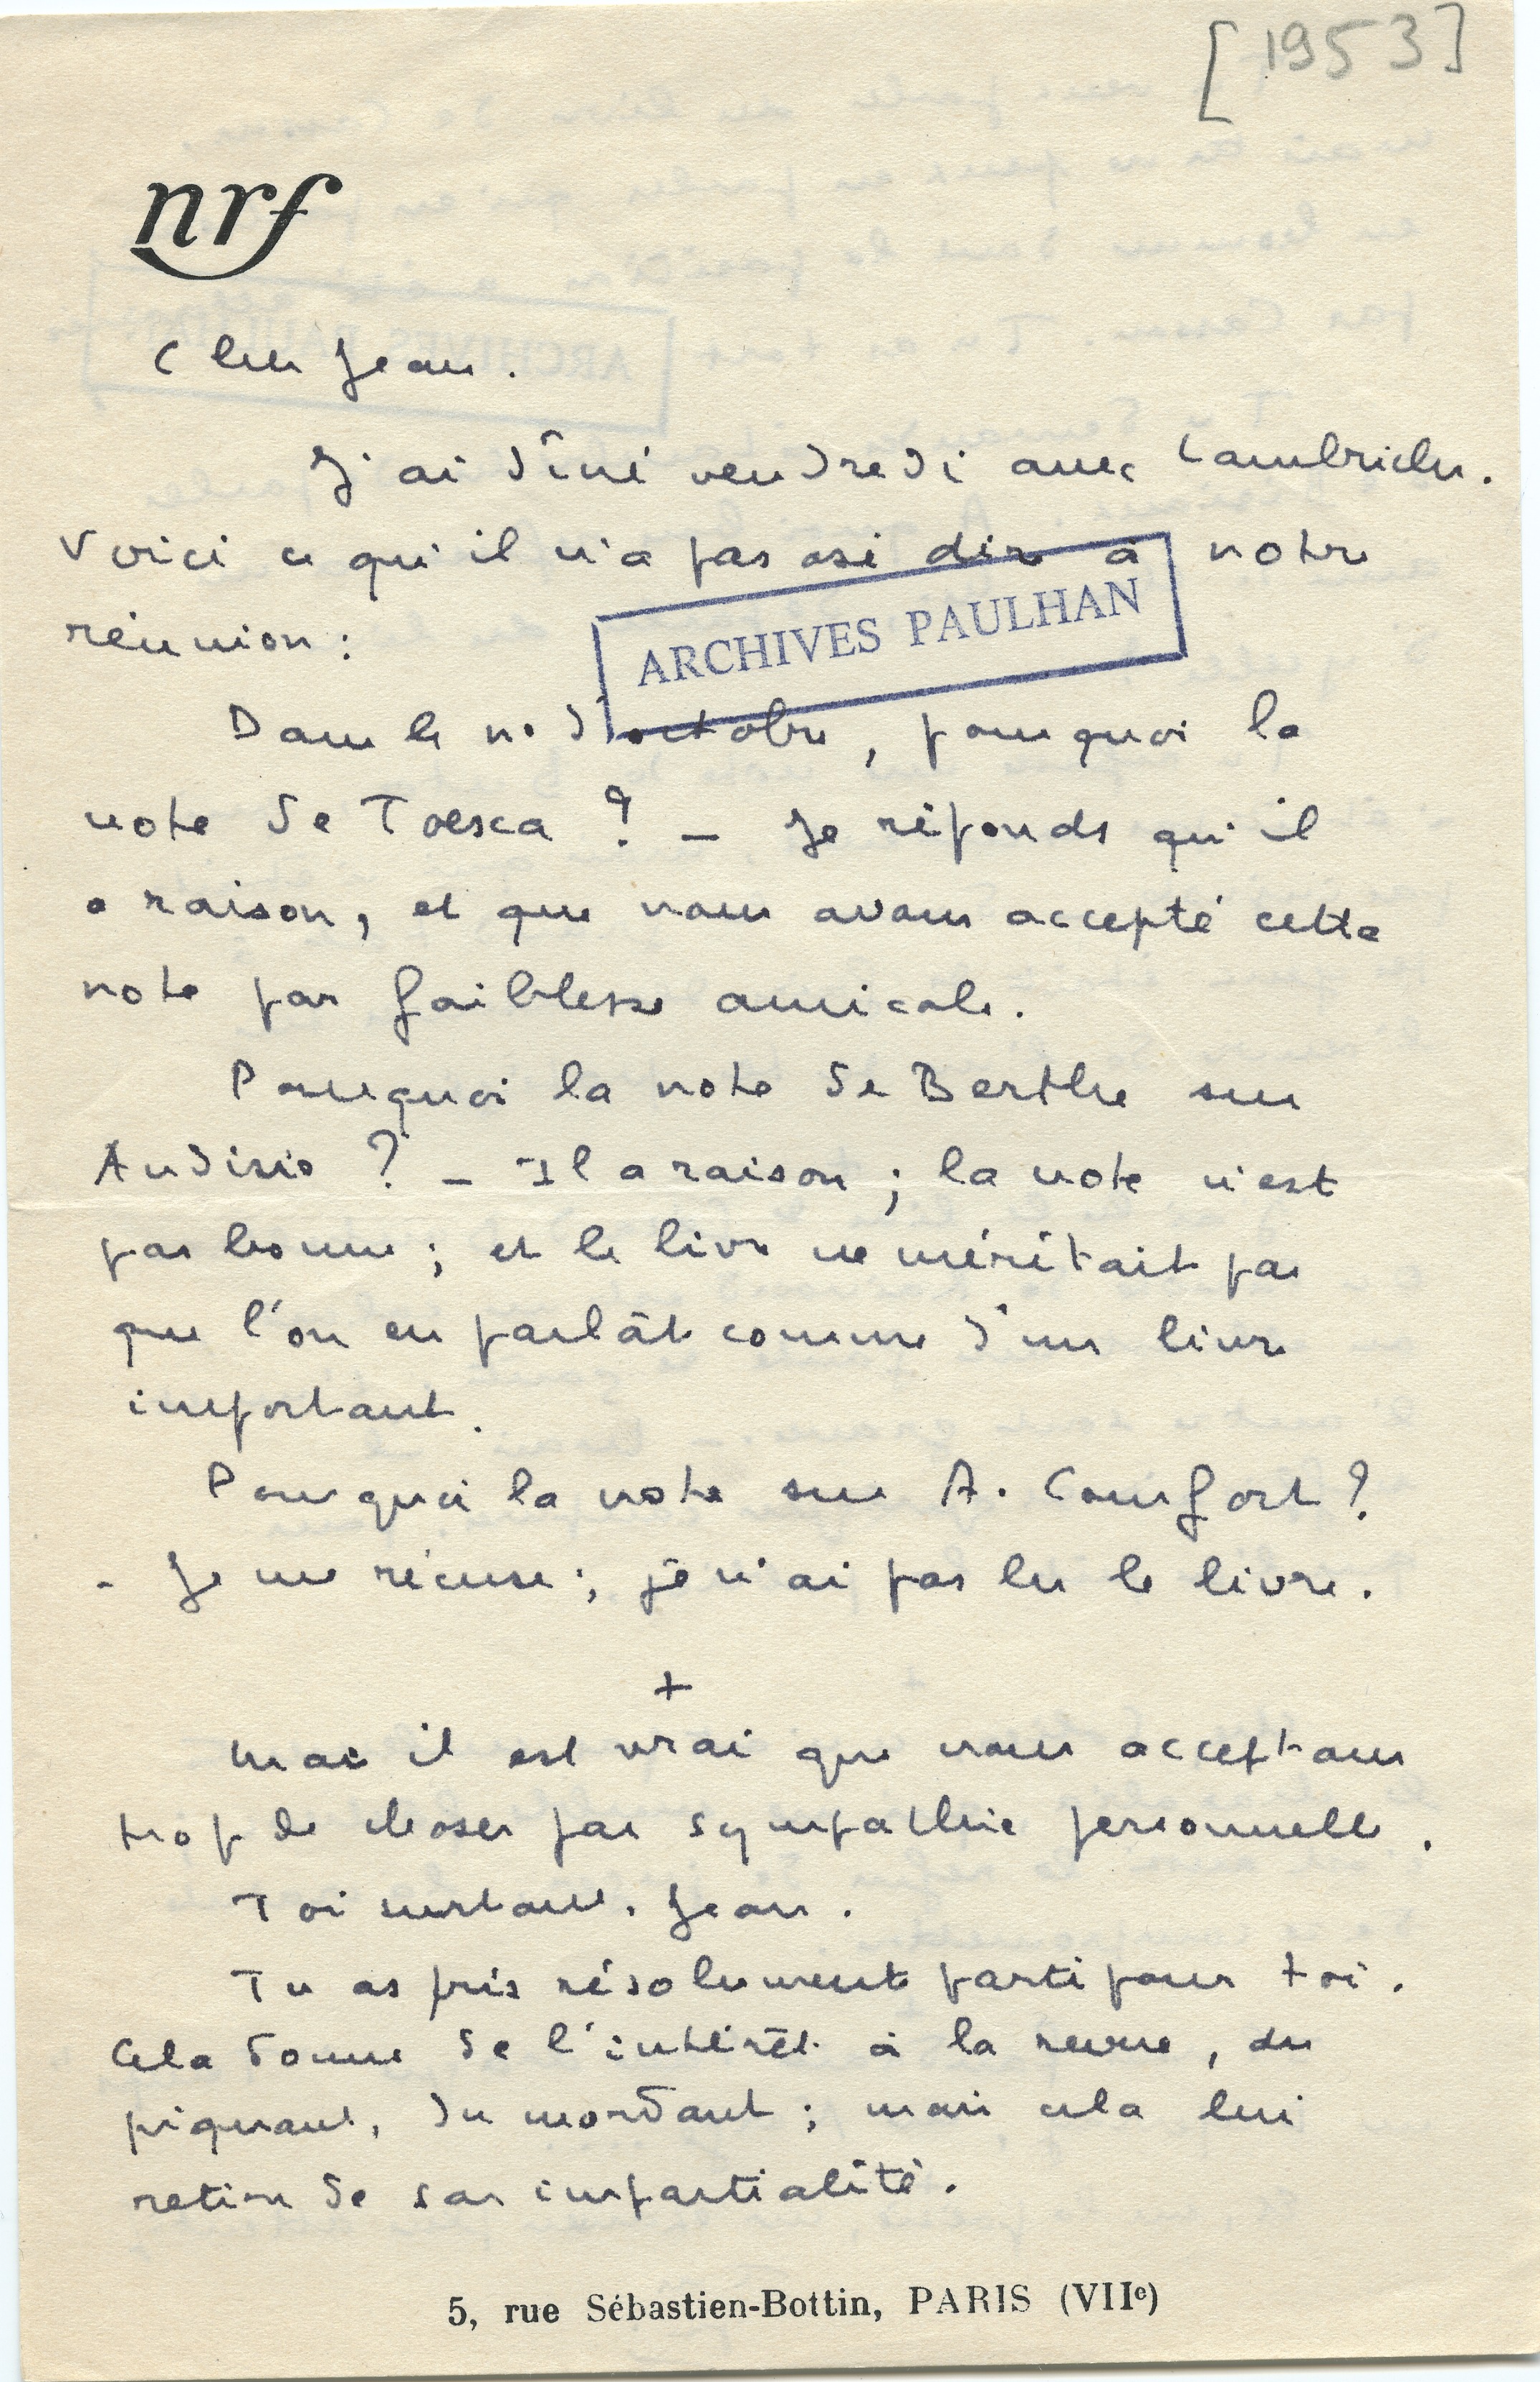 [1953]
nrf
Cher Jean.
J'ai dîné vendredi avec Lambrichs.
Voici ce qu'il n'a pas osé dire à notre
réunion :
ARCHIVES PAULHAN
Dans le no d'octobre, pourquoi la
note de Toesca ? – Je réponds qu'il
a raison, et que nous avons accepté cette
note par faiblesse amicale.
Pourquoi la note de Berthe sur
Audisio ? – Il a raison ; la note n'est
pas bonne ; et le livre ne méritait pas
que l'on en parlât comme d'un livre
important.
Pourquoi la note sur A. Comfort ?
– Je me récuse ; je n'ai pas lu le livre.
+
Mais il est vrai que nous acceptons
trop de choses par sympathie personnelle.
Toi surtout, Jean.
Tu as pris résolument parti pour toi.
Cela donne de l'intérêt à la revue, du
piquant, du mordant ; mais cela lui
retire de son impartialité.
5, rue Sébastien-Bottin, PARIS (VIIe)